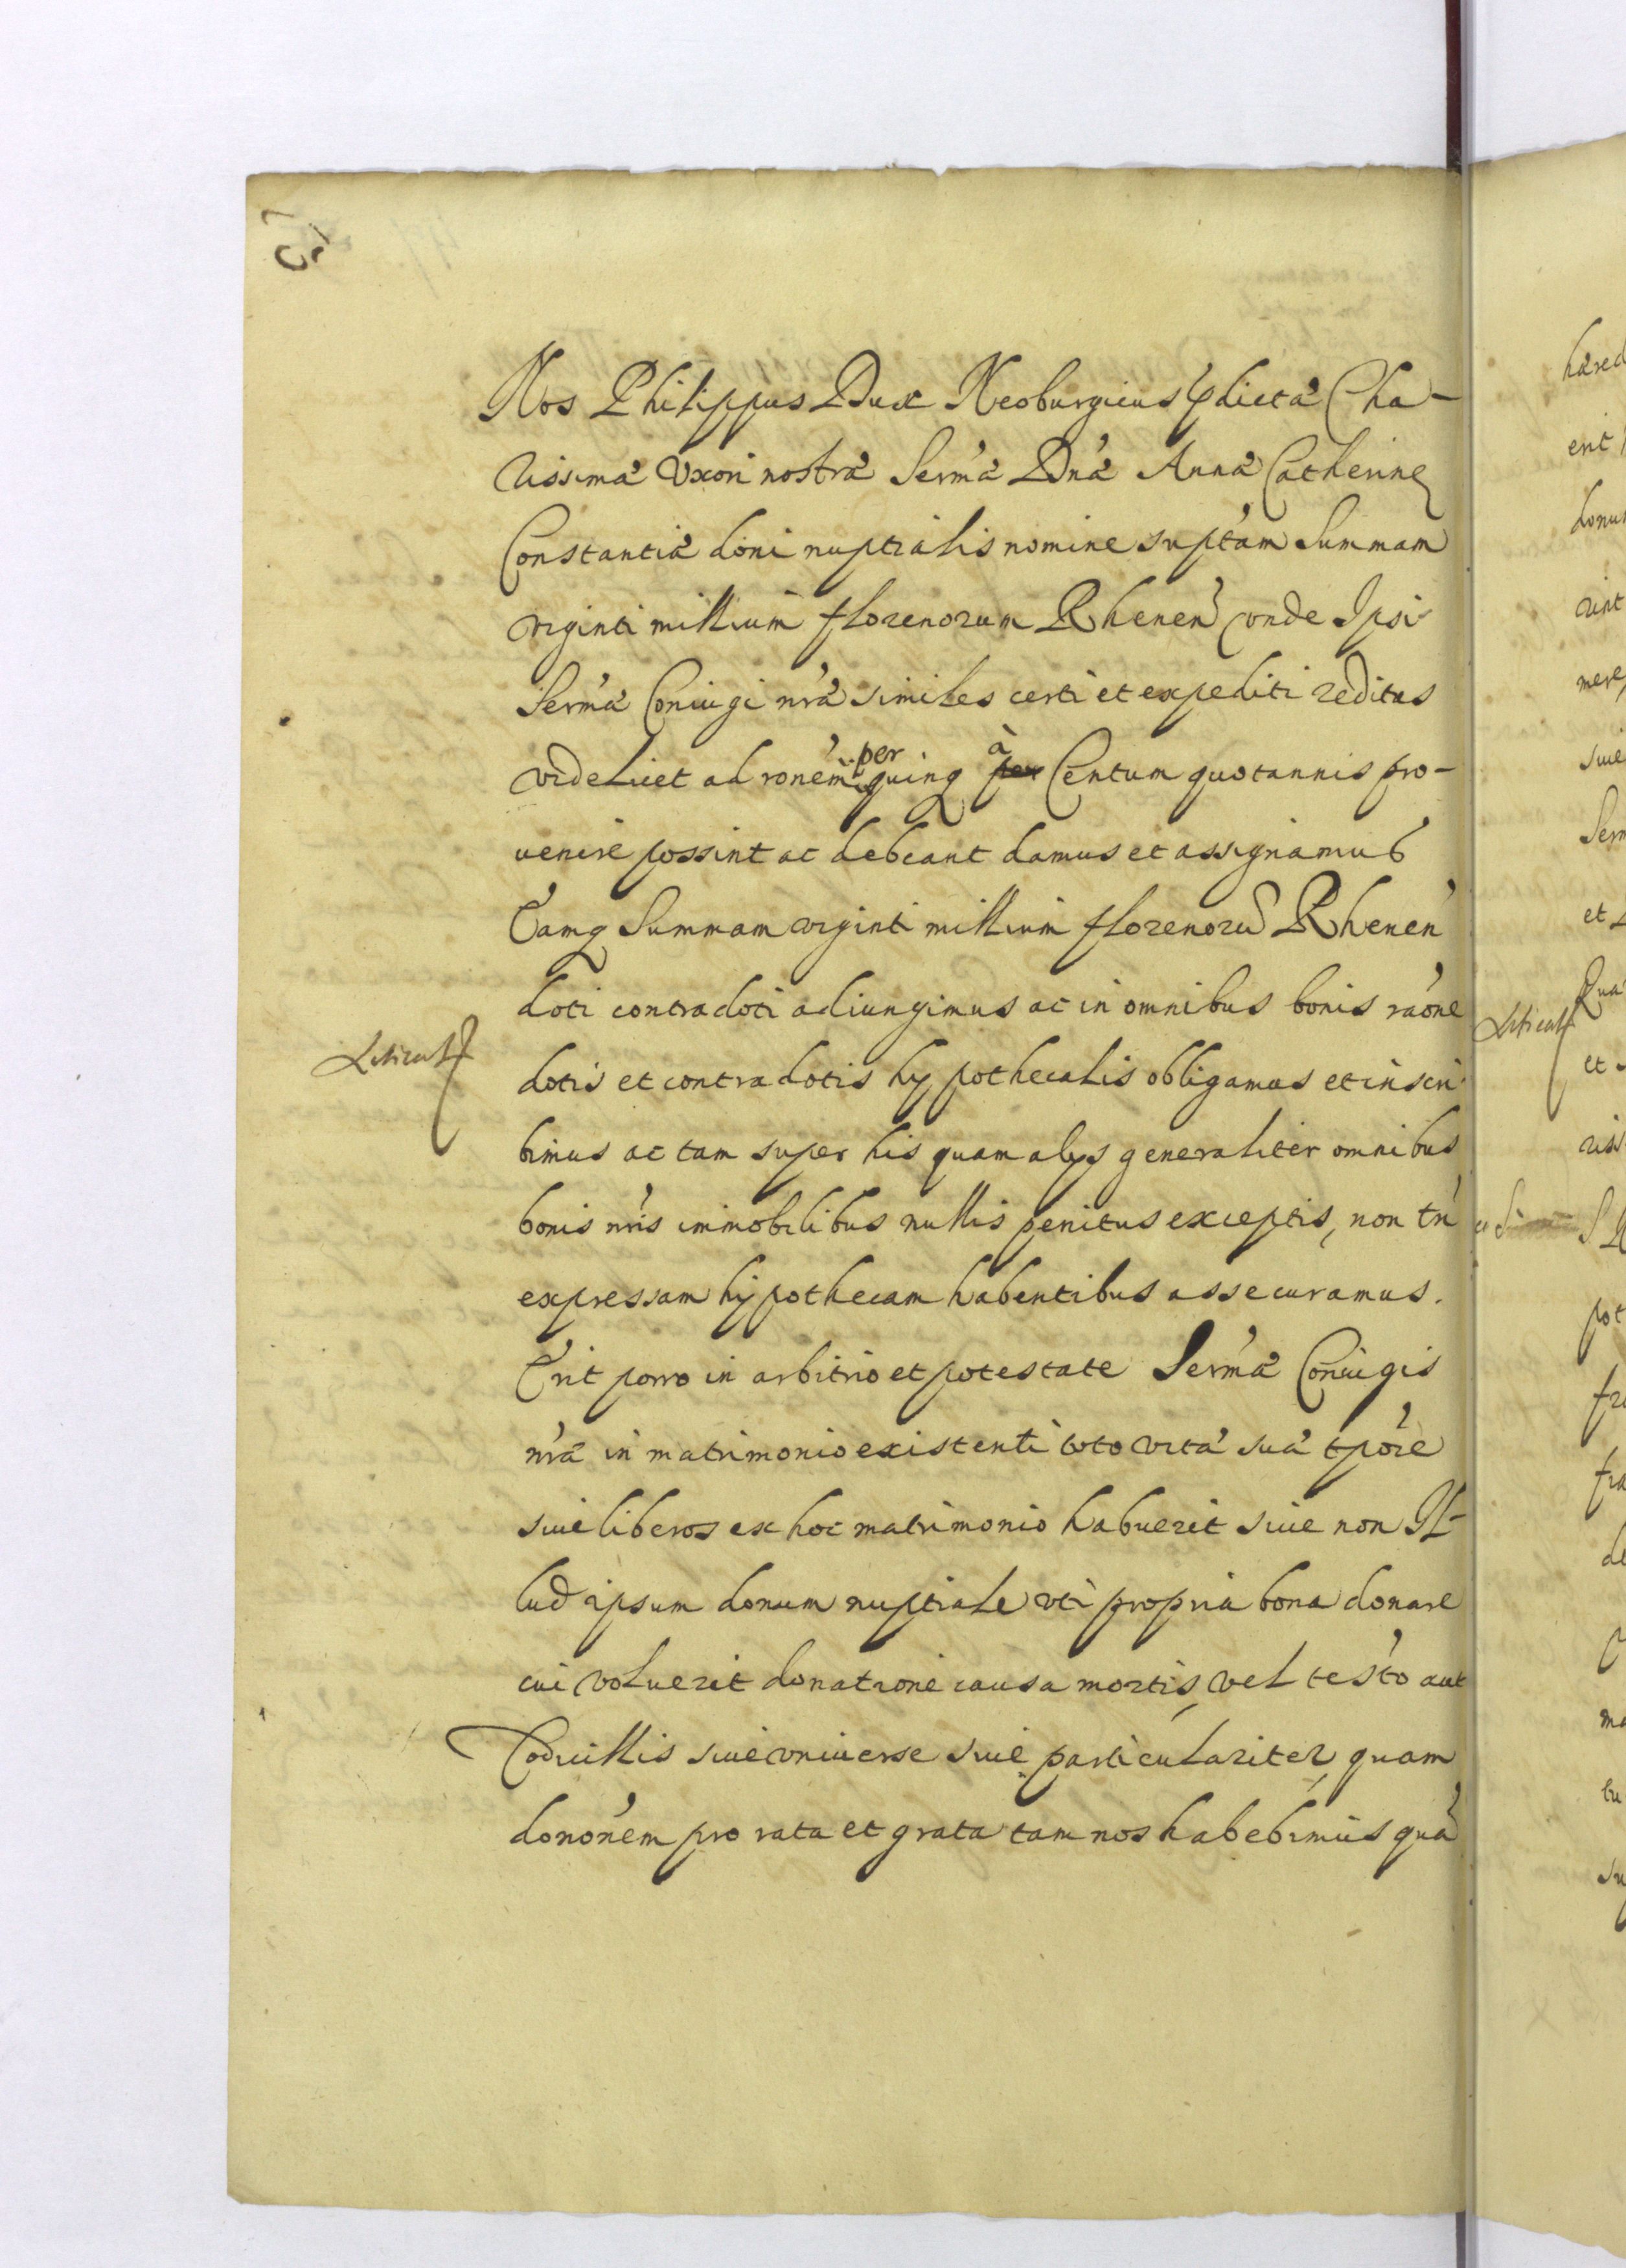 Nos Philippus Dux Neoburgicus pdictæ Cha-
rissimæ Uxori nostræ Sermæ Dnæ Annæ Catherinę
Constantiæ doni nuptialis nomine suptam Summam
viginti millium florenorum Rhenen unde Ipsi
Sermæ Coniugi nræ similes certi et expediti reditus
videlicet ad ronem per quinq à Centum quotannis pro-
venire possint ac debeant damus et assignamus
Eamq Summam viginti millium florenorũ Rhenen
doti contradoti adiungimus ac in omnibus bonis raone
dotis et contradotis hypothecatis obligamus et inscri
bimus ac tam super his quam alys generaliter omnibus
bonis nris immobilibus nullis penitus exceptis, non tn
expressam hypothecam habentibus assecuramus.
Erit porro in arbitrio et potestate Sermæ Coniugis
nræ in matrimonio existenti toto vitæ suæ tpore
siue liberos ex hoc matrimonio habuerit siue non Il-
lud ipsum donum nuptiale uti propria bona donare
cui voluerit donatione causa mortis, vel testo aut
Codicillis siue universe siue particulariter, quam
dononem pro rata et grata tam nos habebimus quã
hæred
erit
donu
rint
mere
siue
Serm
et
Qua
et
riss
pot
fra
de
ma
su